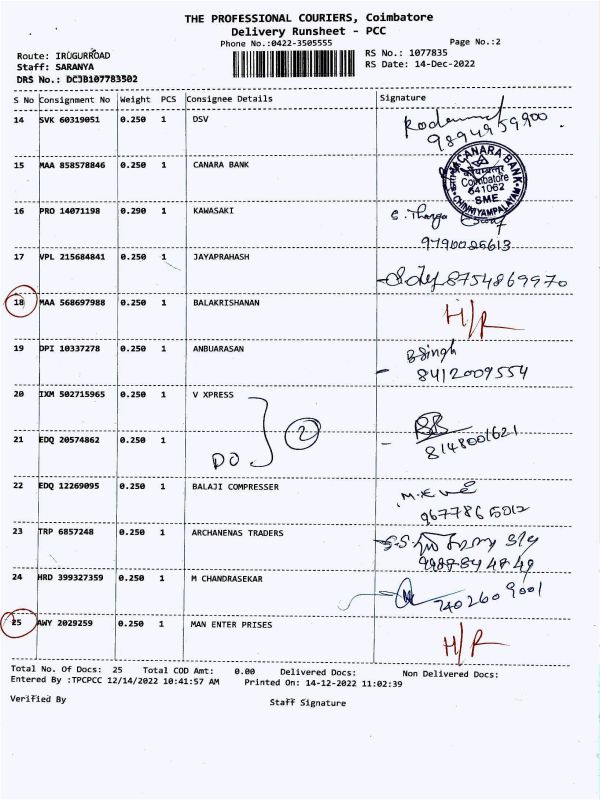 THE PROFESSIONAL COURIERS, Coimbatore
Delivery Runsheet - PCC
Phone No.:0422-3505555 Page No.:2
Route: IRUGURROAD RS No.: 1077835
Staff: SARANYA RS Date: 14-Dec-2022
DRS No.: DCJB107783502
S No Consignment No Weight PCS Consignee Details Signature
14 SVK 60319051 0.250 1 DSV
9894959900.
15 MAA 858578846 0.250 1 CANARA BANK
CANARA BANK
Coimbatore
641062
SME
CHINNIYAMPALAYAM
16 PRO 14071198 0.290 1 KAWASAKI
9790026613
17 VPL 215684841 0.250 1 JAYAPRAHASH
8754869970
18 MAA 568697988 0.250 1 BALAKRISHANAN H/R
19 DPI 10337278 0.250 1 ANBUARASAN B Singh
8412009554
20 IXM 502715965 0.250 1 V XPRESS
2
21 EDQ 20574862 0.250 1
DO
8148001621
22 EDQ 12269095 0.250 1 BALAJI COMPRESSER
9677865012
23 TRP 6857248 0.250 1 ARCHANENAS TRADERS
24 HRD 399327359 0.250 1 M CHANDRASEKAR
7402609001
25 AWY 2029259 0.250 1 MAN ENTER PRISES H/R
Total No. Of Docs: 25 Total COD Amt: 0.00 Delivered Docs: Non Delivered Docs:
Entered By :TPCPCC 12/14/2022 10:41:57 AM Printed On: 14-12-2022 11:02:39
Verified By Staff Signature